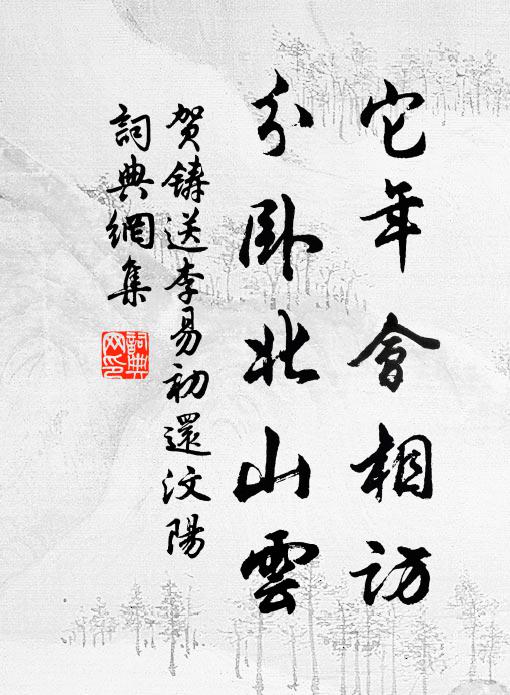 它年會相訪
分臥北山雲
賀鑄送李易初還汶陽
詞典網集
詞典網印